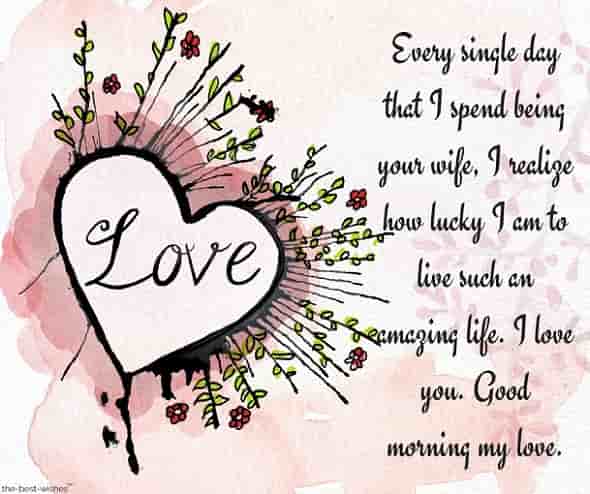 Every single day
that I spend being
your wife, I realize
how lucky I am to
live such an
amazing life. I love
you. Good
morning my love.
Love
the-best-wishes™